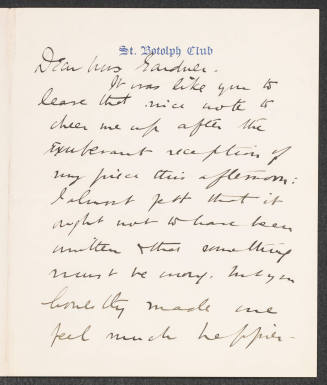 St. Botolph Club
Dear Mrs Gardner.
It was like you to
leave that nice note to
cheer me up after the
exuberant reception of
my piece this afternoon:
I almost felt that it
ought not to have been
written & that something
must be wrong. But you
honestly made me
feel much happier-